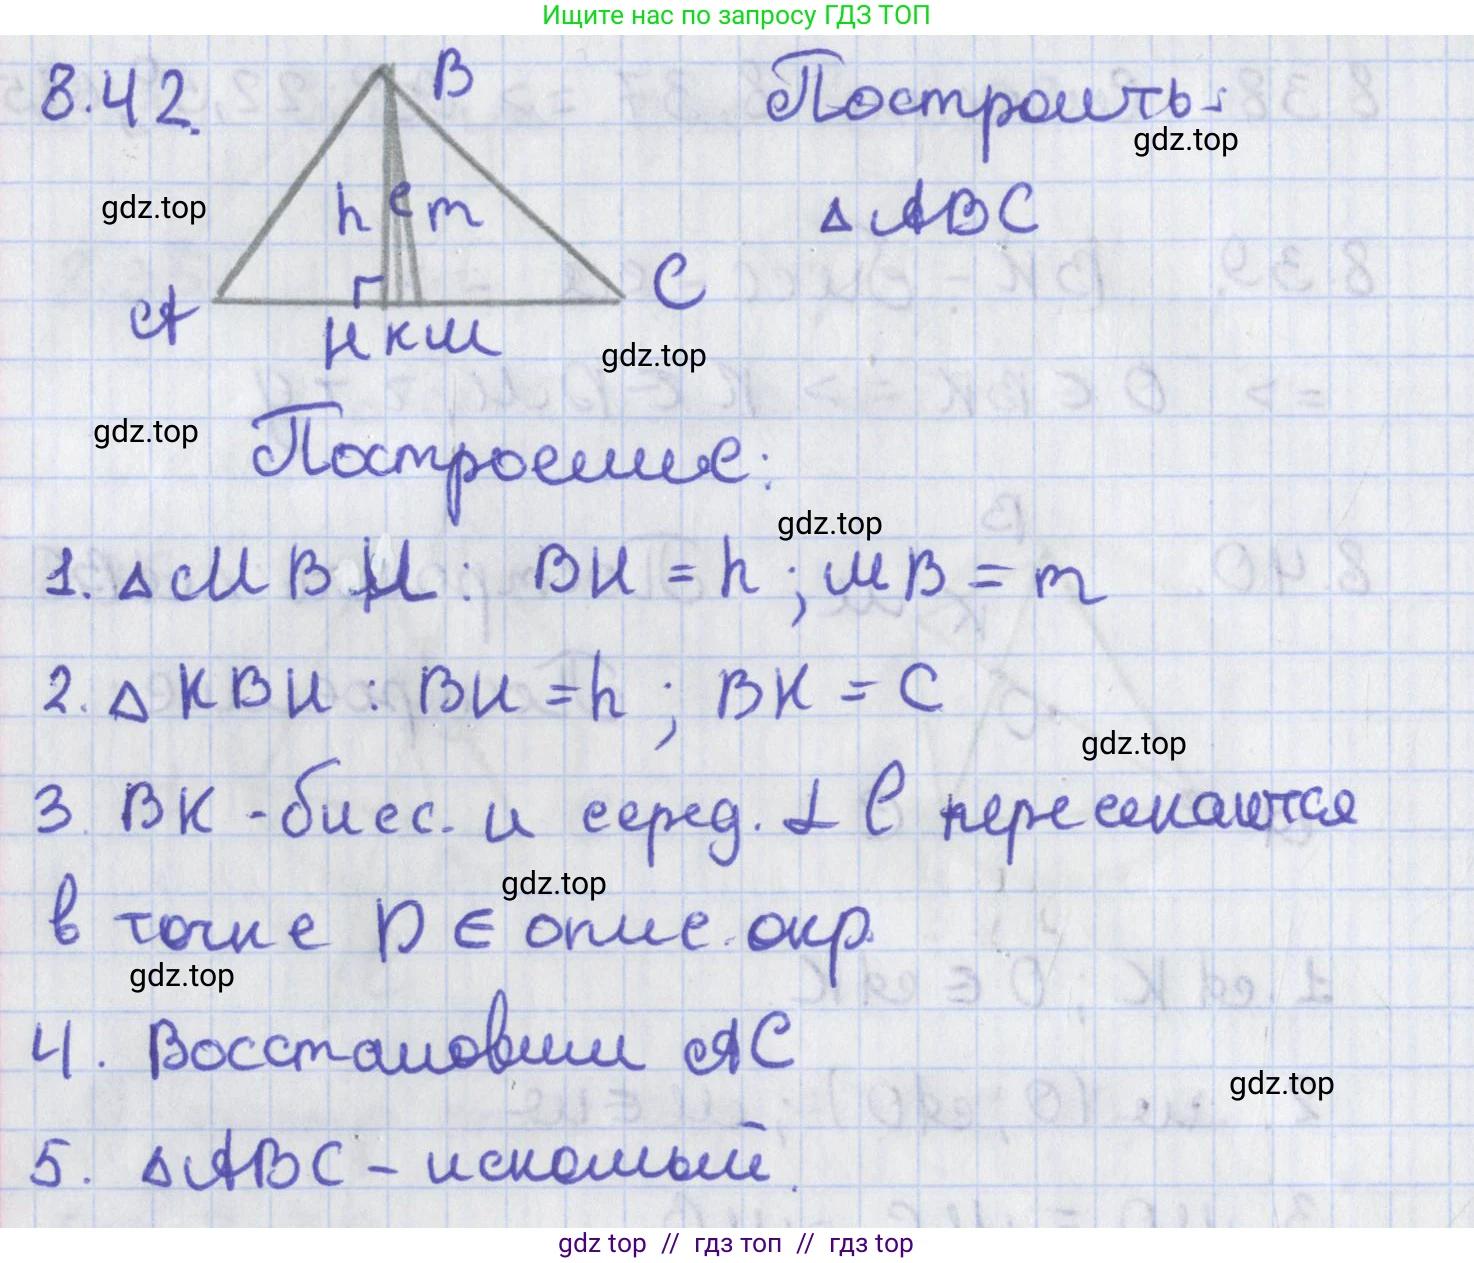 Ищите нас по запросу ГДЗ ТОП
8.42.
B
Построить:
gdz.top
gdz.top
h
e
m
△ABC
A
C
H K M
gdz.top
gdz.top
Построение:
gdz.top
1. △MBH: BH = h; MB = m
2. △KBH: BH = h; BK = C
gdz.top
3. BK - бисс. и серед. ⊥ l пересекаются
gdz.top
в точке D ∈ опис. окр.
gdz.top
4. Восстановим AC
gdz.top
5. △ABC - искомый.
gdz top // гдз топ // гдз top